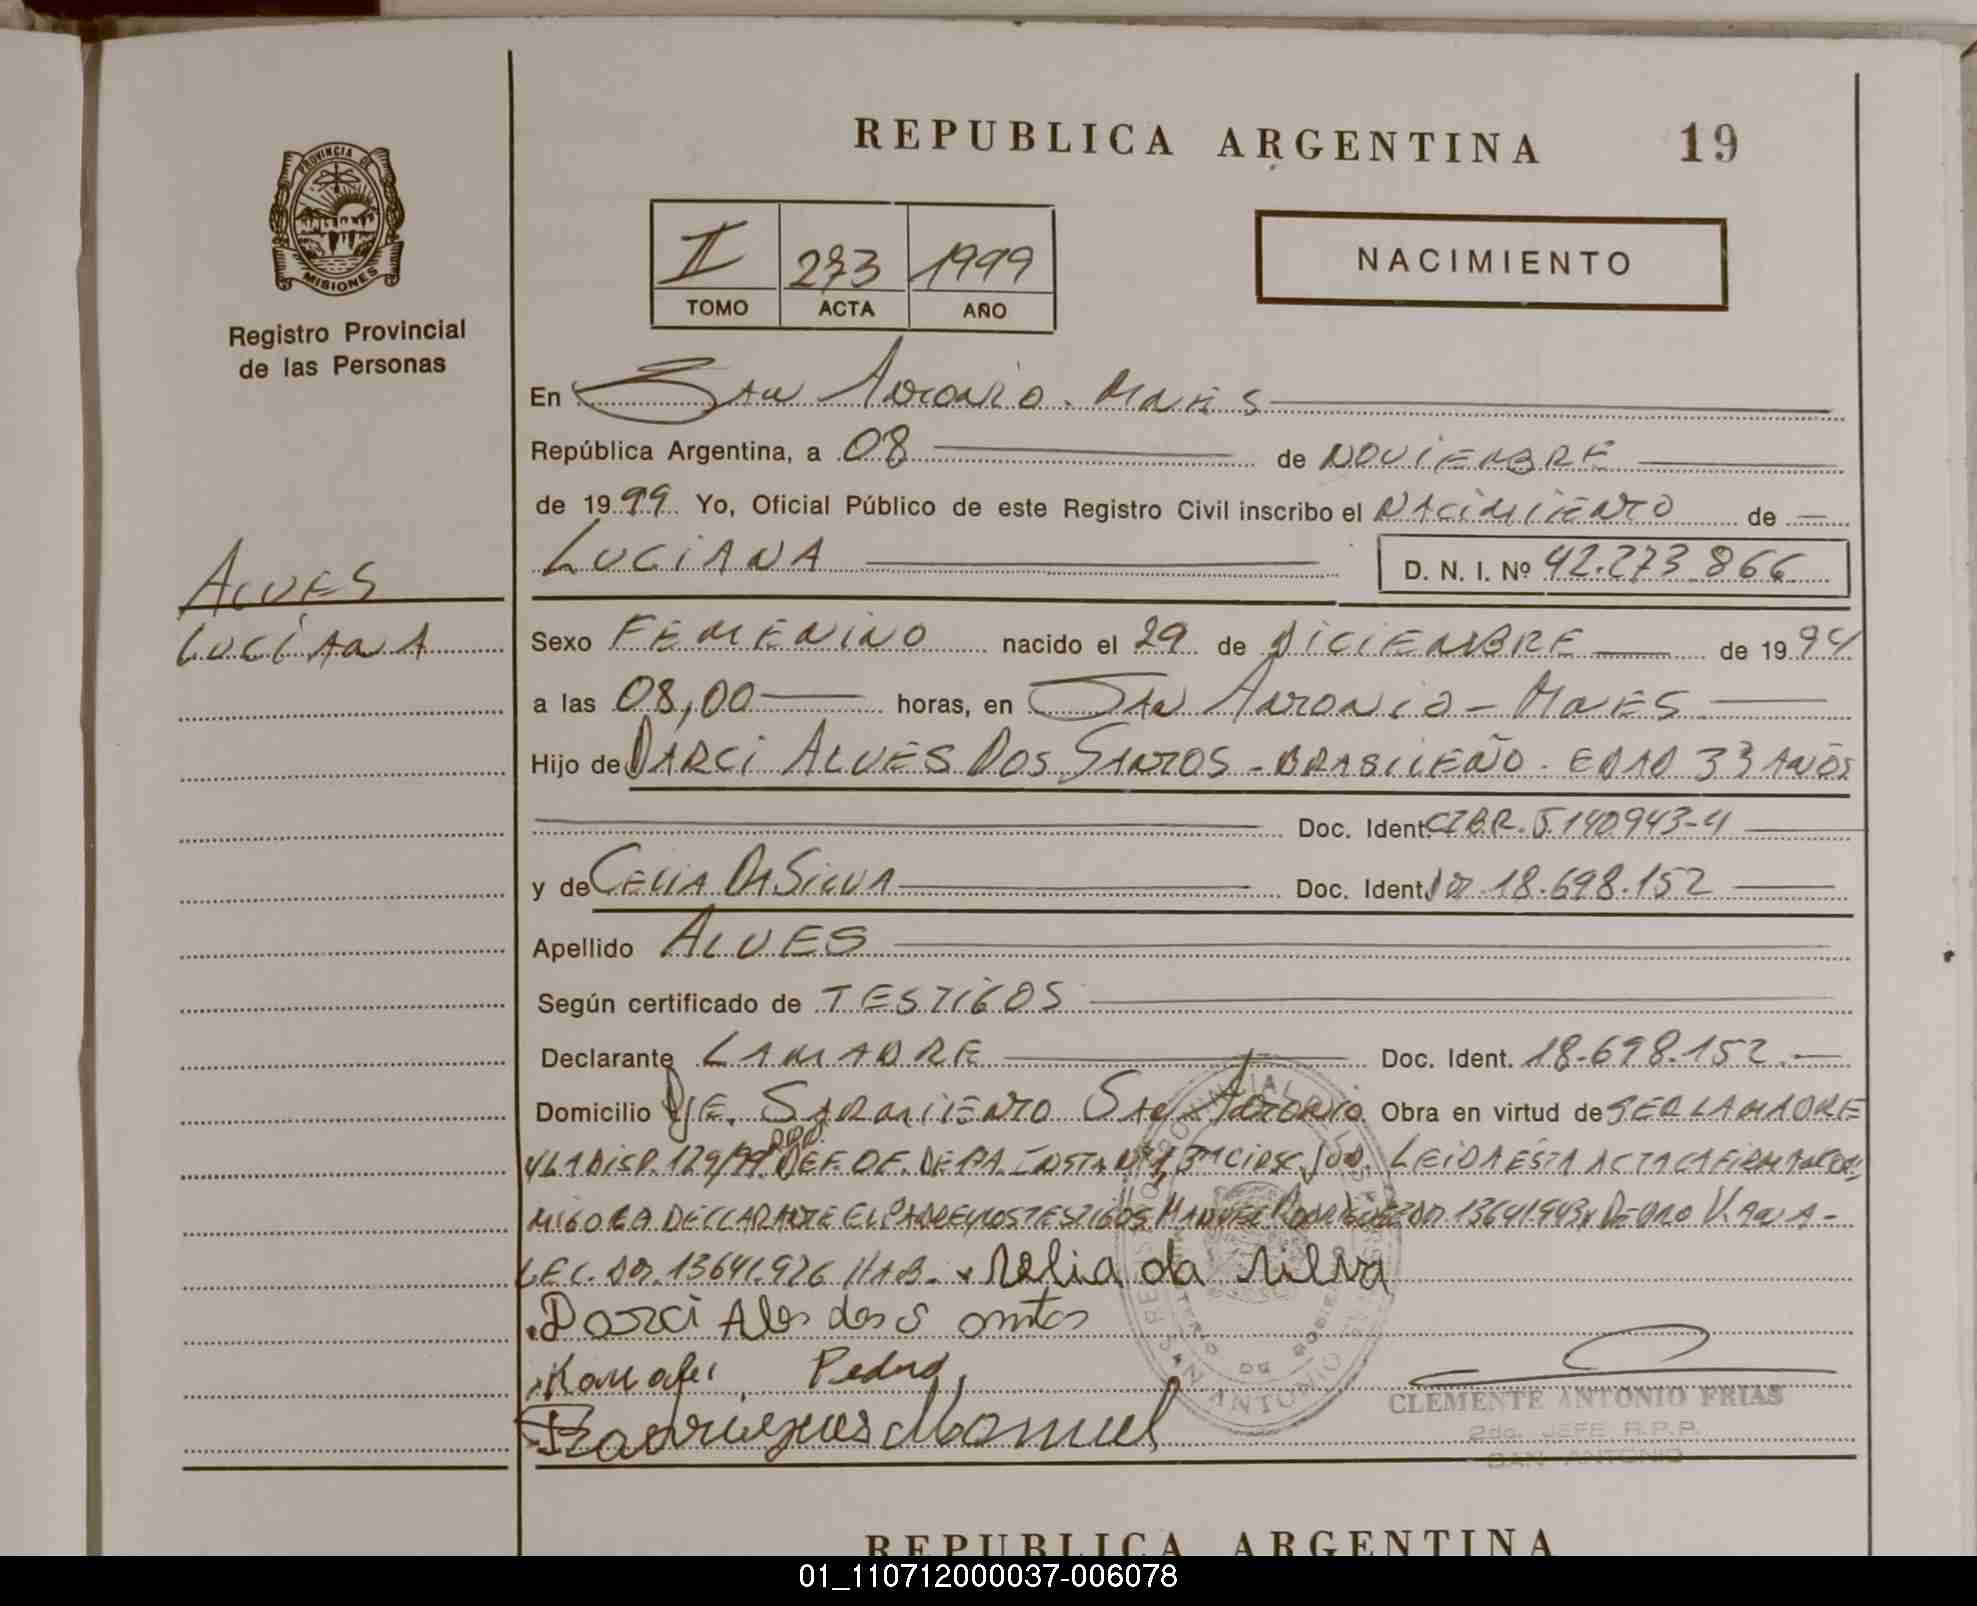 REPUBLICA ARGENTINA 19
PROVINCIA DE
MISIONES
Registro Provincial
de las Personas
II 273 1999
TOMO ACTA AÑO
NACIMIENTO
En San Antonio. Mnes
República Argentina, a 08 de NOVIEMBRE
de 1999 Yo, Oficial Público de este Registro Civil inscribo el NACIMIENTO de
LUCIANA D. N. I. Nº 42.273.866
ALVES
LUCIANA
Sexo FEMENINO nacido el 29 de DICIEMBRE de 1994
a las 08,00 horas, en SAN ANTONIO - MNES
Hijo de DARCI ALVES DOS SANTOS - BRASILEÑO - EDAD 33 AÑOS
Doc. Ident. CIBR. 5.140943-4
y de CELIA DA SILVA Doc. Ident. 18.698.152
Apellido ALVES
Según certificado de TESTIGOS
Declarante LA MADRE Doc. Ident. 18.698.152
Domicilio SARMIENTO SAN ANTONIO Obra en virtud de SER LA MADRE
Y LA DISP. 129/99 DEF. OF. DE LEIDA ESTA ACTA LA FIRMAN CON
MIGO LA DECLARANTE EL PADRE Y LOS TESTIGOS MANUEL RODRIGUEZ 13641943 PEDRO
13641.926 HAB. Celia da Silva
Darci Alves dos Santos
Pedro
Rodrigues Manuel
CLEMENTE ANTONIO FRIAS
2do. JEFE R.P.P.
SAN ANTONIO
REPUBLICA ARGENTINA
01_110712000037-006078